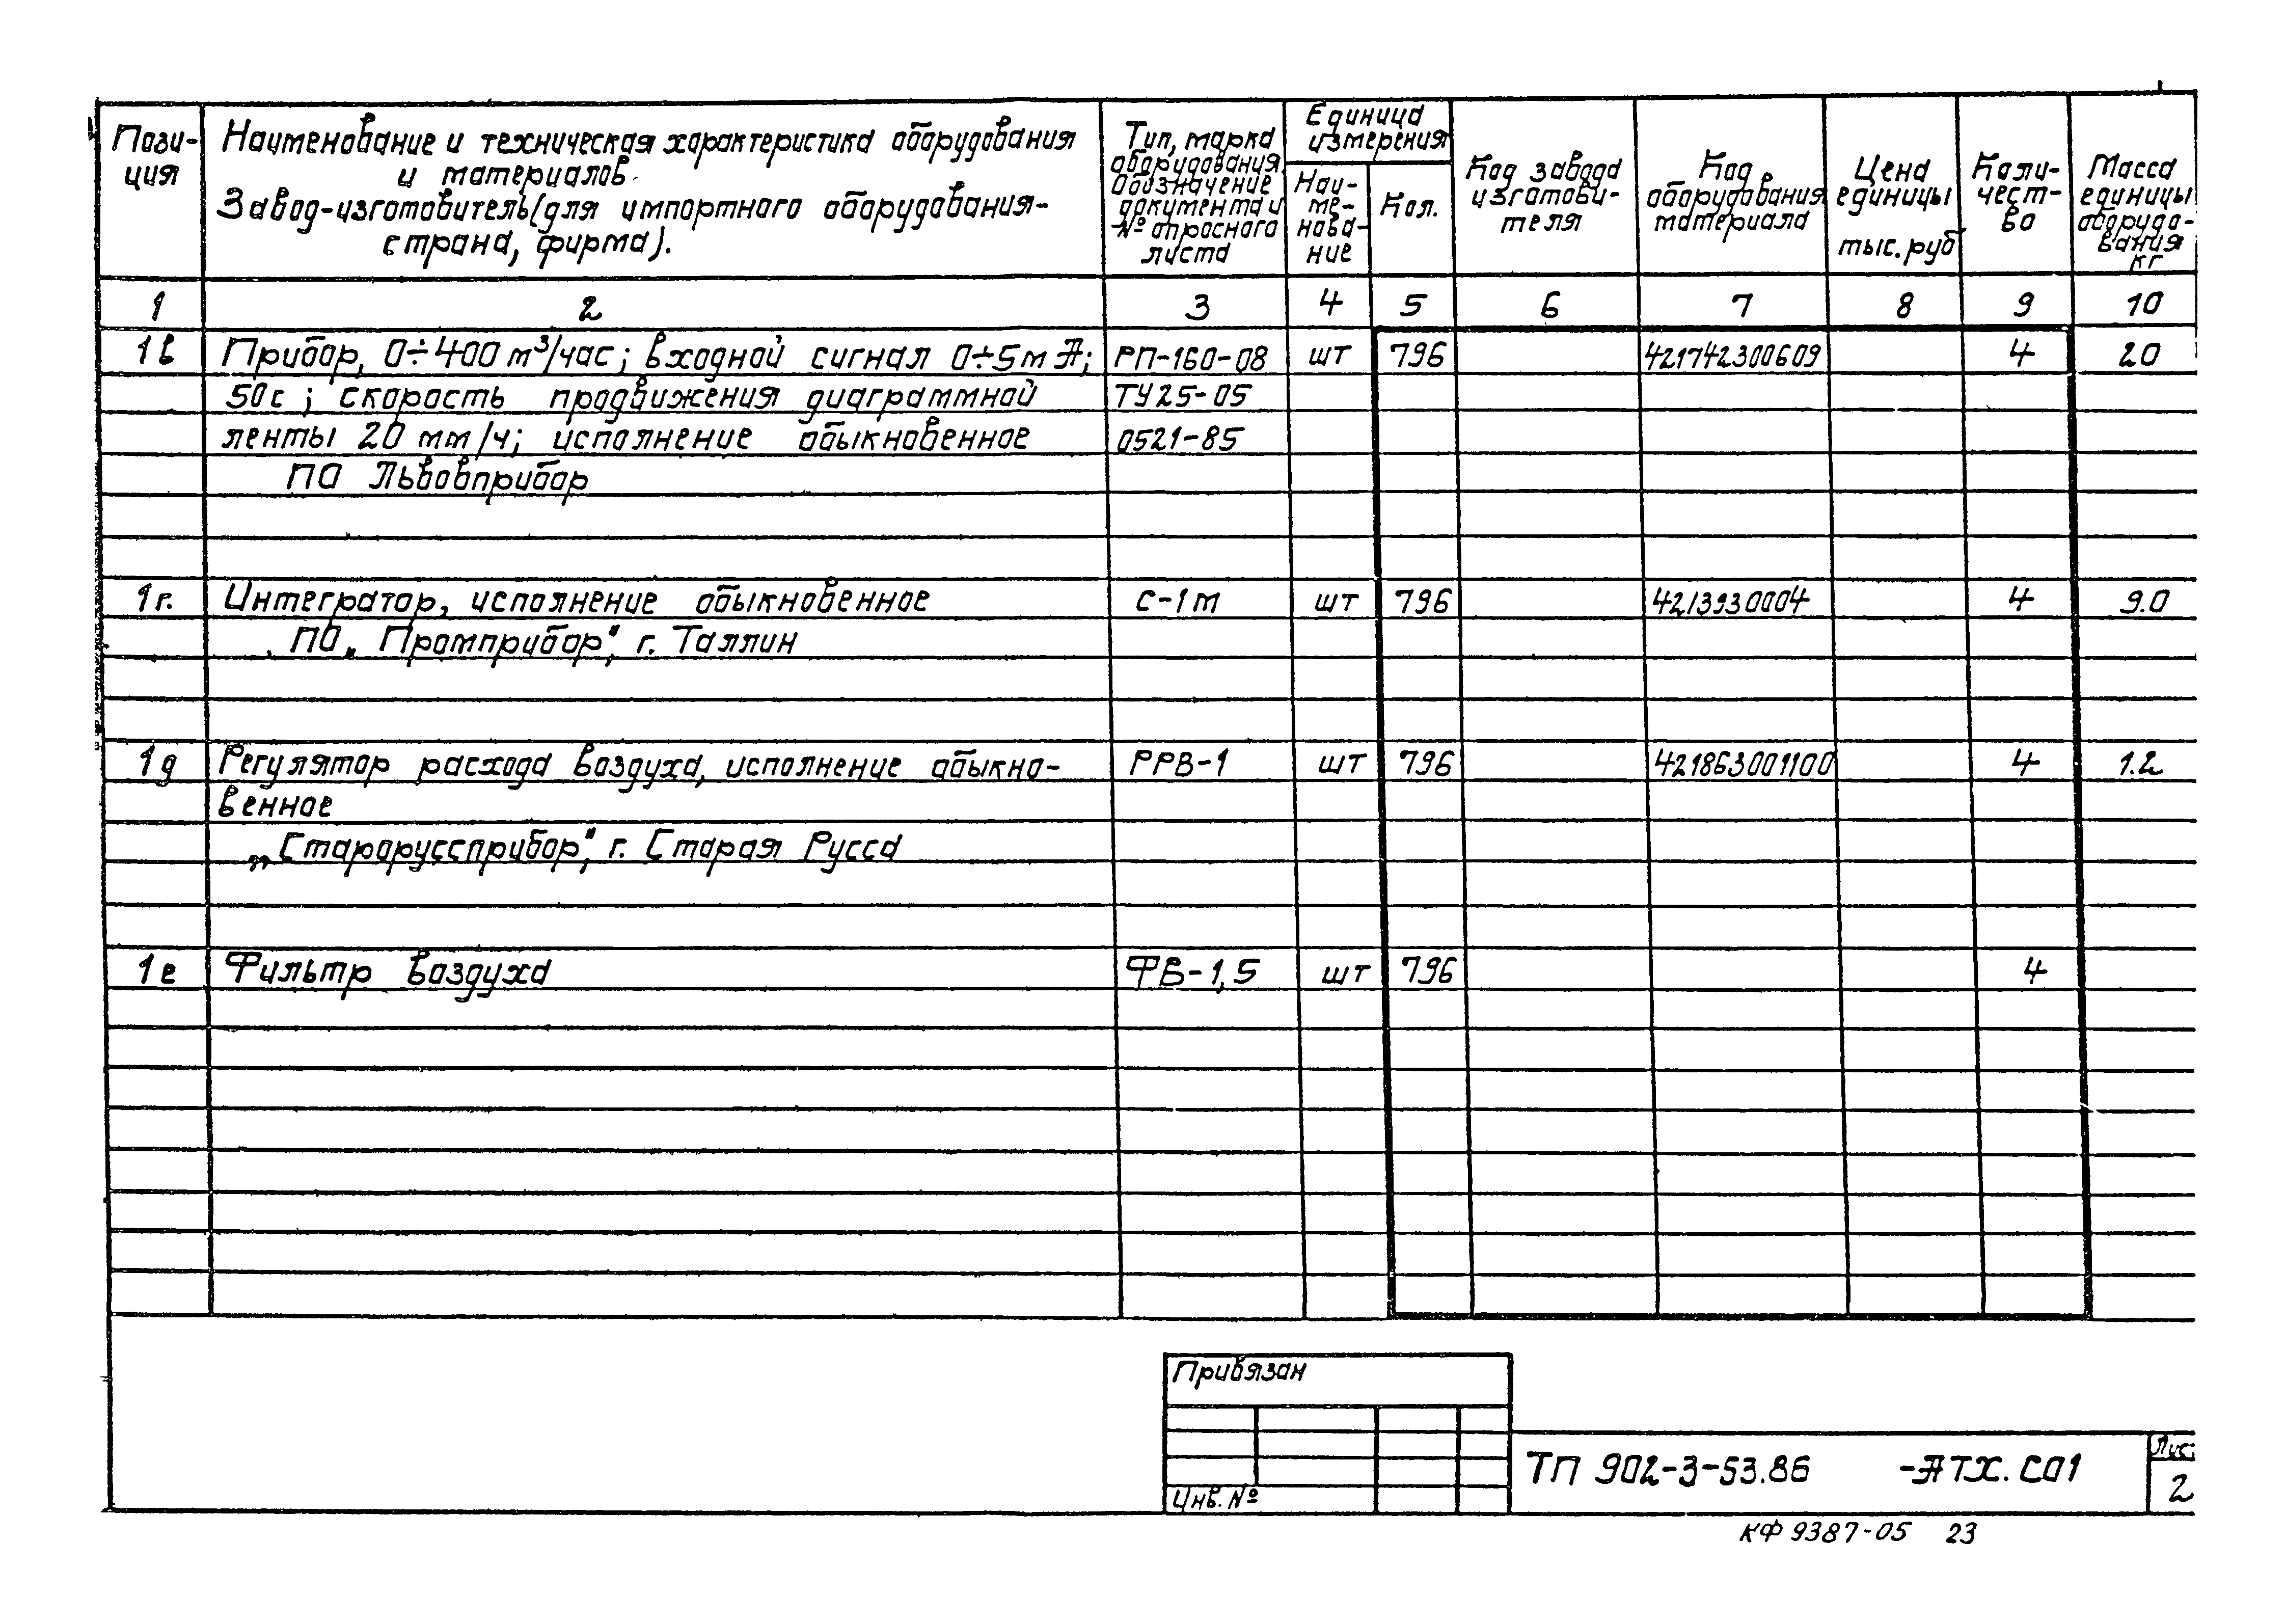 Пози-
ция
Наименование и техническая характеристика оборудования
и материалов.
Завод-изготовитель (для импортного оборудования-
страна, фирма).
Тип, марка
оборудования.
Обозначение
документа и
№ опросного
листа
Единица
измерения
Наи-
ме-
нова-
ние
Кол.
Код завода
изготови-
теля
Код
оборудования
материала
Цена
единицы
тыс.руб
Коли-
чест-
во
Масса
единицы
оборудо-
вания
кг
1 2 3 4 5 6 7 8 9 10
1в Прибор, 0÷400 м³/час; входной сигнал 0÷5 mA; РП-160-08 шт 796 421742300609 4 20
50с; скорость продвижения диаграммной ТУ25-05
ленты 20 мм/ч; исполнение обыкновенное 0521-85
ПО Львовприбор
1г. Интегратор, исполнение обыкновенное С-1М шт 796 4213930004 4 9.0
ПО „Промприбор", г. Таллин
1д Регулятор расхода воздуха, исполнение обыкно- РРВ-1 шт 796 421863001100 4 1.2
венное
„Старорусприбор", г. Старая Русса
1е Фильтр воздуха ФВ-1,5 шт 796 4
Привязан
Инв. №
ТП 902-3-53.86 -АТХ. СО1
Лис
2
КФ 9387-05 23